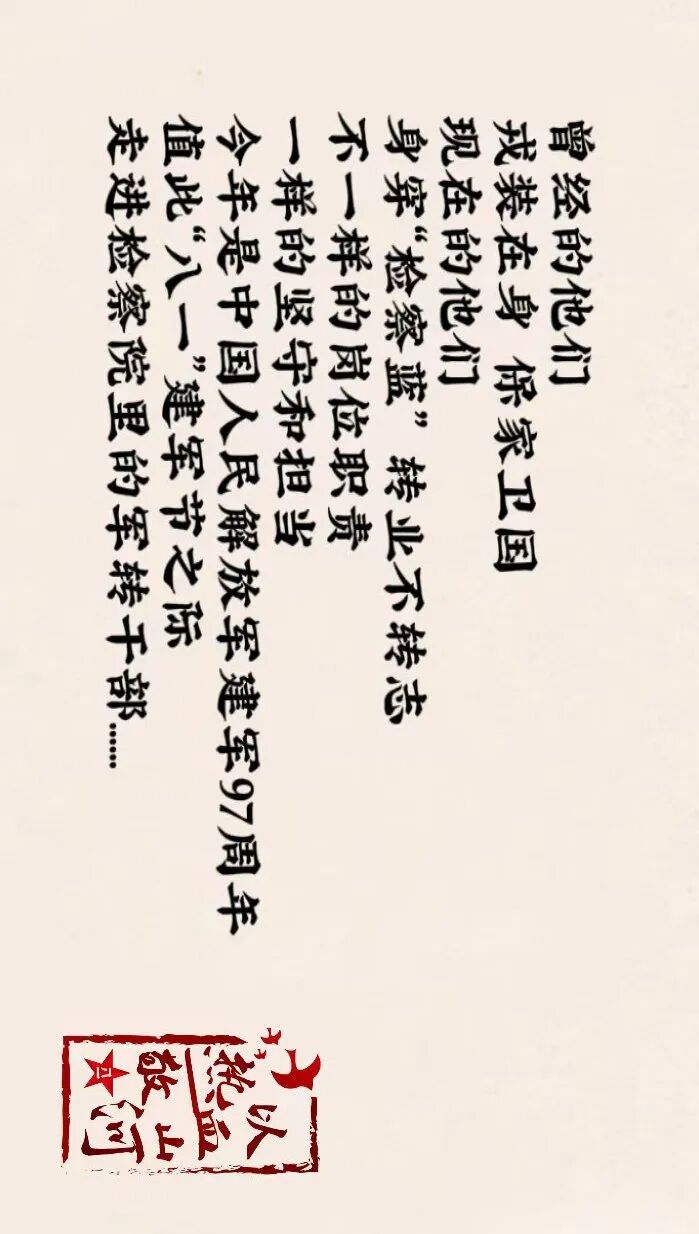 曾经的他们
戎装在身 保家卫国
现在的他们
身穿“检察蓝” 转业不转志
不一样的岗位职责
一样的坚守和担当
今年是中国人民解放军建军97周年
值此“八一”建军节之际
走进检察院里的军转干部……
以
热血
敬山河
八一